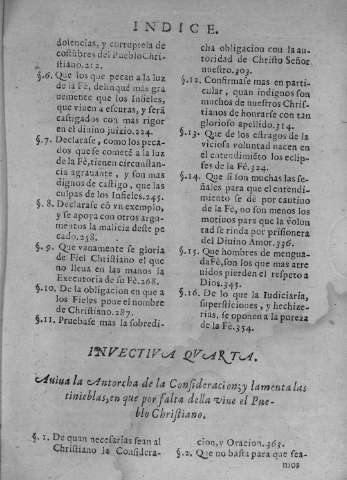 INDICE.
dolencias, y corruptela de
costūbres del Pueblo Chri-
stiano.212.
§.6. Que los que pecan a la luz
de la Fè, delinquē mas gra
uemente que los Infieles,
que viuen a escuras, y serà
castigados con mas rigor
en el diuino juizio.224.
§.7. Declarase, como los peca-
dos que se cometē a la luz
de la Fè, tienen circunstan-
cia agrauante, y son mas
dignos de castigo, que las
culpas de los Infieles.245.
§.8. Declarase cō vn exemplo,
y se apoya con otros argu-
mentos la malicia deste pe
cado.258.
§.9. Que vanamente se gloria
de Fiel Christiano el que
no lleua en las manos la
Executoria de su Fè.268.
§.10. De la obligacion en que a
los Fieles pone el nombre
de Christiano.287.
§.11. Pruebase mas la sobredi-
cha obligacion con la au-
toridad de Christo Señor
nuestro.303.
§.12. Confirmase mas en parti-
cular, quan indignos son
muchos de nuestros Chris-
tianos de honrarse con tan
glorioso apellido.314.
§.13. Que de los estragos de la
viciosa voluntad nacen en
el entendimiēto los eclip-
ses de la Fè.324.
§.14. Que si son muchas las se-
ñales para que el entendi-
miento se dè por cautiuo
de la Fè, no son menos los
motiuos para que la volun
tad se rinda por prisionera
del Diuino Amor.336.
§.15. Que hombres de mengua-
da Fè, son los que mas atre
uidos pierden el respeto a
Dios.345.
§.16. De lo que la Iudiciaria,
supersticiones, y hechize-
rias, se oponen a la pureza
de la Fè.354.
INVECTIVA QVARTA.
Auiua la Antorcha de la Consideracion; y lamenta las
tinieblas, en que por falta della viue el Pue-
blo Christiano.
§.1. De quan necesarias sean al
Christiano la Considera-
cion, y Oracion.363.
§.2. Que no basta para que sea-
mos